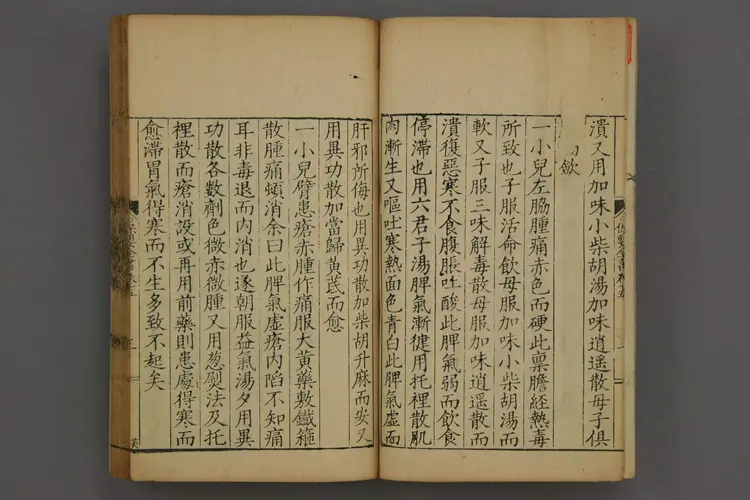 潰又用加味小柴胡湯加味逍遥散母子俱
欽
一小兒左脇腫痛赤色而硬此稟膽經熱毒
所致也子服活命飲母服加味小柴胡湯而
軟又子服三味解毒散母服加味逍遥散而
潰復惡寒不食腹脹吐酸此脾氣弱而飲食
停滯也用六君子湯脾氣漸健用托裡散肌
肉漸生又嘔吐寒熱面色青白此脾氣虚而
肝邪所侮也用異功散加柴胡升麻而安又
用異功散加當歸黃芪而愈
一小兒臂患瘡赤腫作痛服大黃藥敷鐵箍
散腫痛頓消余曰此脾氣虚瘡内陷不知痛
耳非毒退而内消也遂朝服益氣湯夕用異
功散各數劑色微赤微腫又用葱熨法及托
裡散而瘡消設或再用前藥則患處得寒而
愈滯胃氣得寒而不生多致不起矣